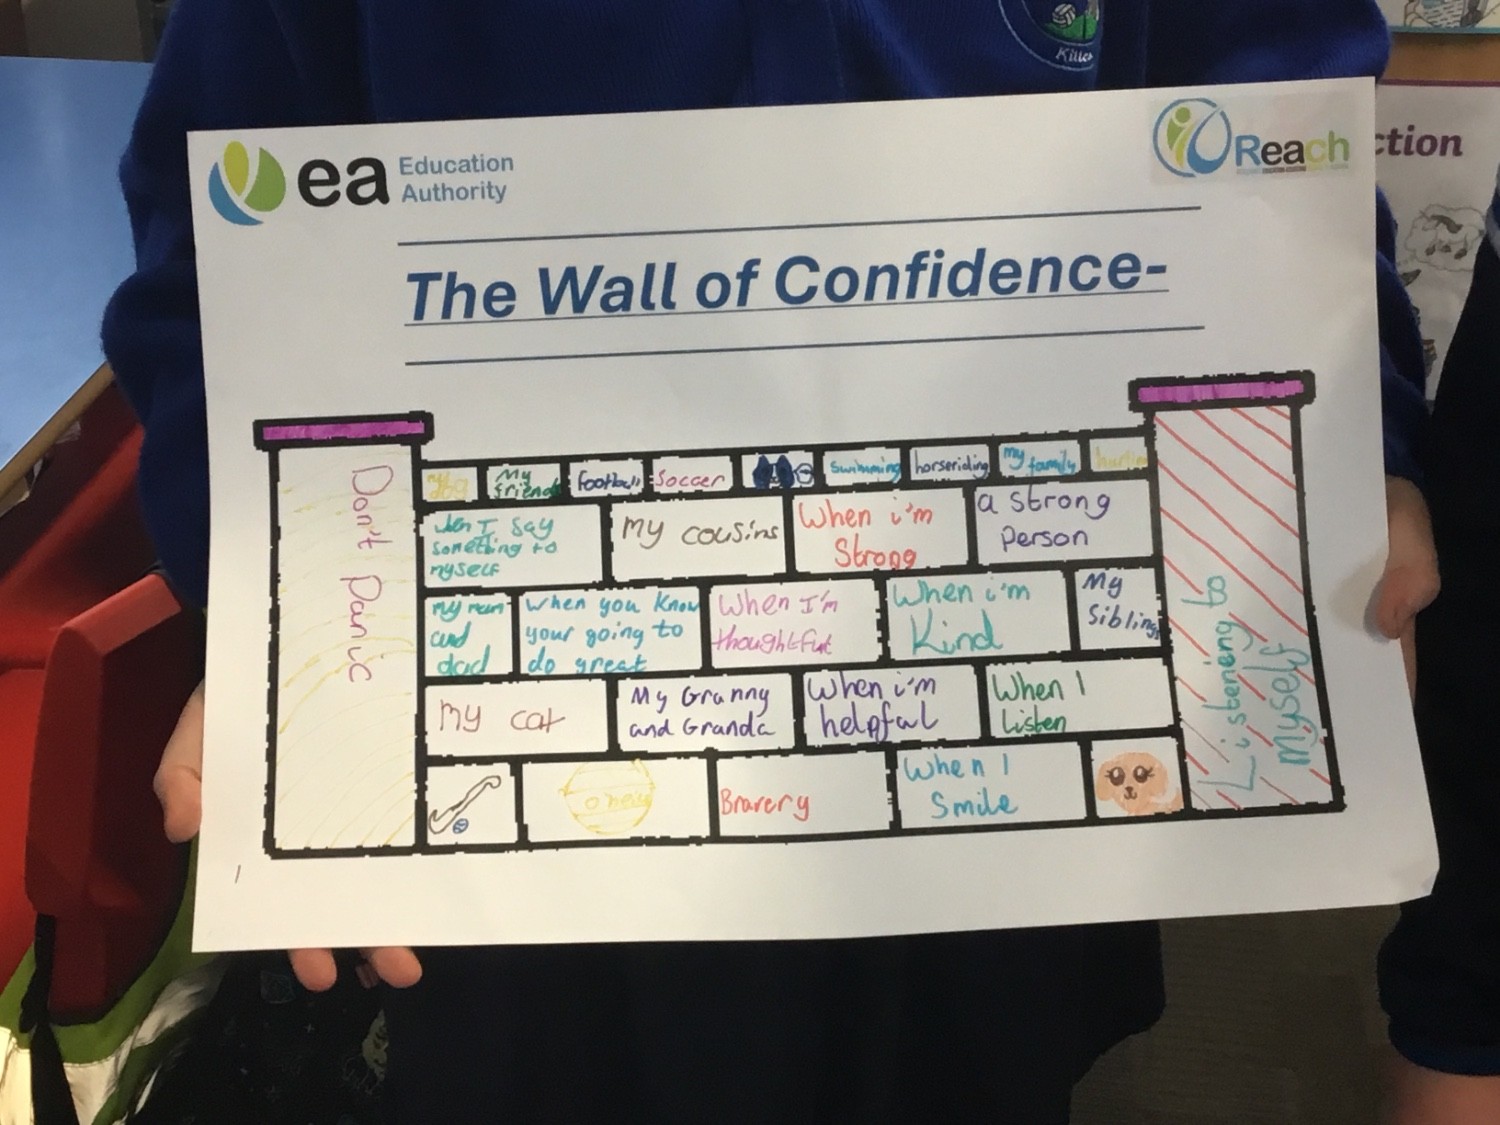 Kilke
ea Education
Authority
Reach
ction
The Wall of Confidence-
Don't Panic
my dog
My
friends
football
Soccer
swimming
horseriding
my family
hurling
when I say
something to
myself
My cousins
When i'm
Strong
a strong
person
my mum
and
dad
when you know
your going to
do great
When I'm
thoughtful
When i'm
Kind
My
Siblings
My cat
My Granny
and Granda
When i'm
helpful
When I
Listen
Bravery
When I
Smile
Listening to
Myself